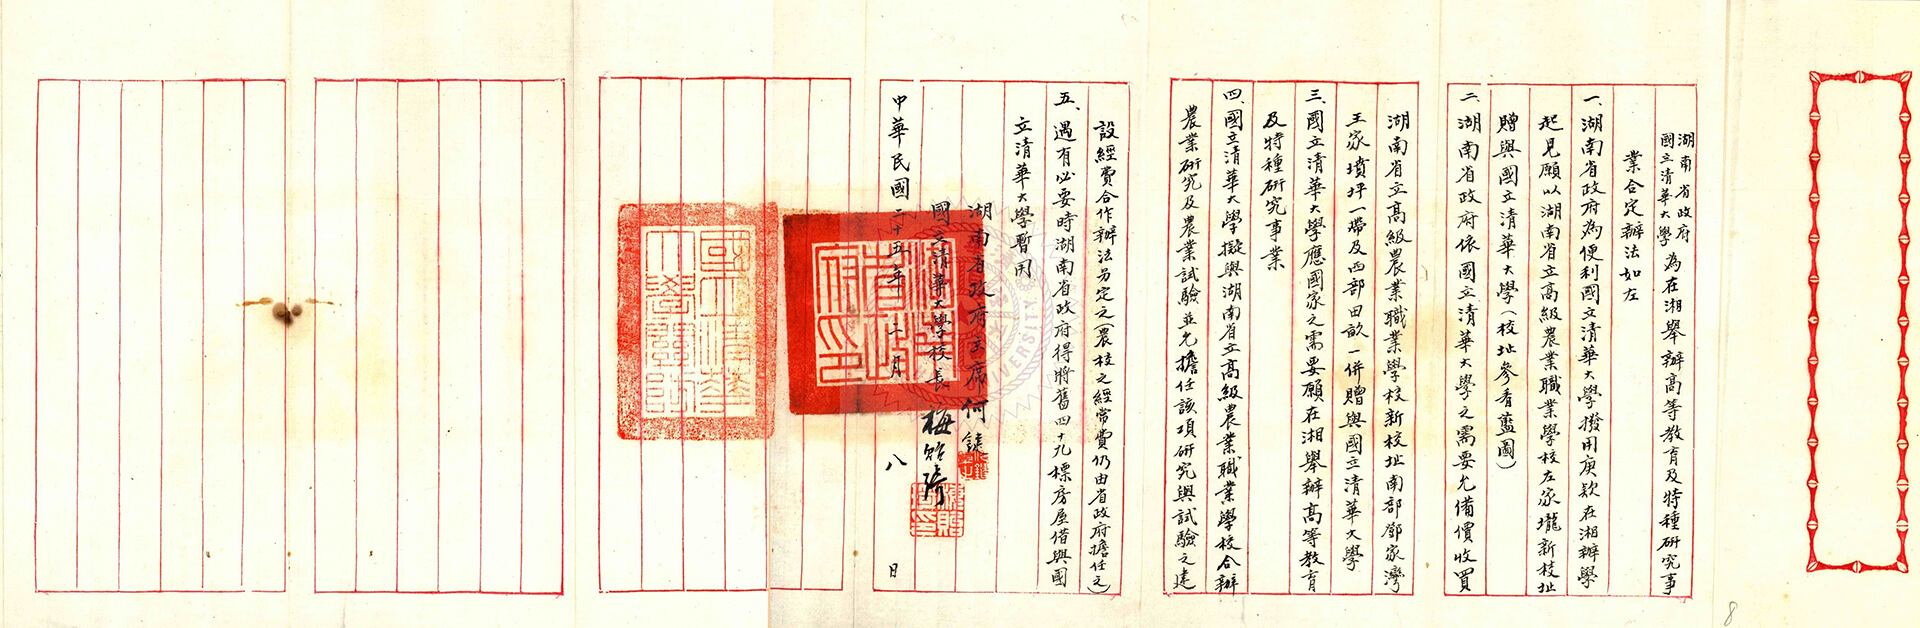 湖南省政府
國立清華大學
為在湘舉辦高等教育及特種研究事
業合定辦法如左
一、湖南省政府為便利國立清華大學撥用庚欵在湘辦學
起見願以湖南省立高級農業職業學校左家壠新校址
贈與國立清華大學（校址參看藍圖）
二、湖南省政府依國立清華大學之需要允備價收買
湖南省立高級農業職業學校新校址南部鄒家灣
王家墳坪一帶及西部田畝一併贈與國立清華大學
三、國立清華大學應國家之需要願在湘舉辦高等教育
及特種研究事業
四、國立清華大學擬與湖南省立高級農業職業學校合辦
農業研究及農業試驗並允擔任該項研究與試驗之建
設經費合作辦法另定之（農校之經常費仍由省政府擔任之）
五、遇有必要時湖南省政府得將舊四十九標房屋借與國
立清華大學暫用
湖南省政府主席何鍵
國立清華大學校長梅貽琦
中華民國二十五年二月八日
湖南省政府印
國立清華大學關防
UNIVERSITY
8